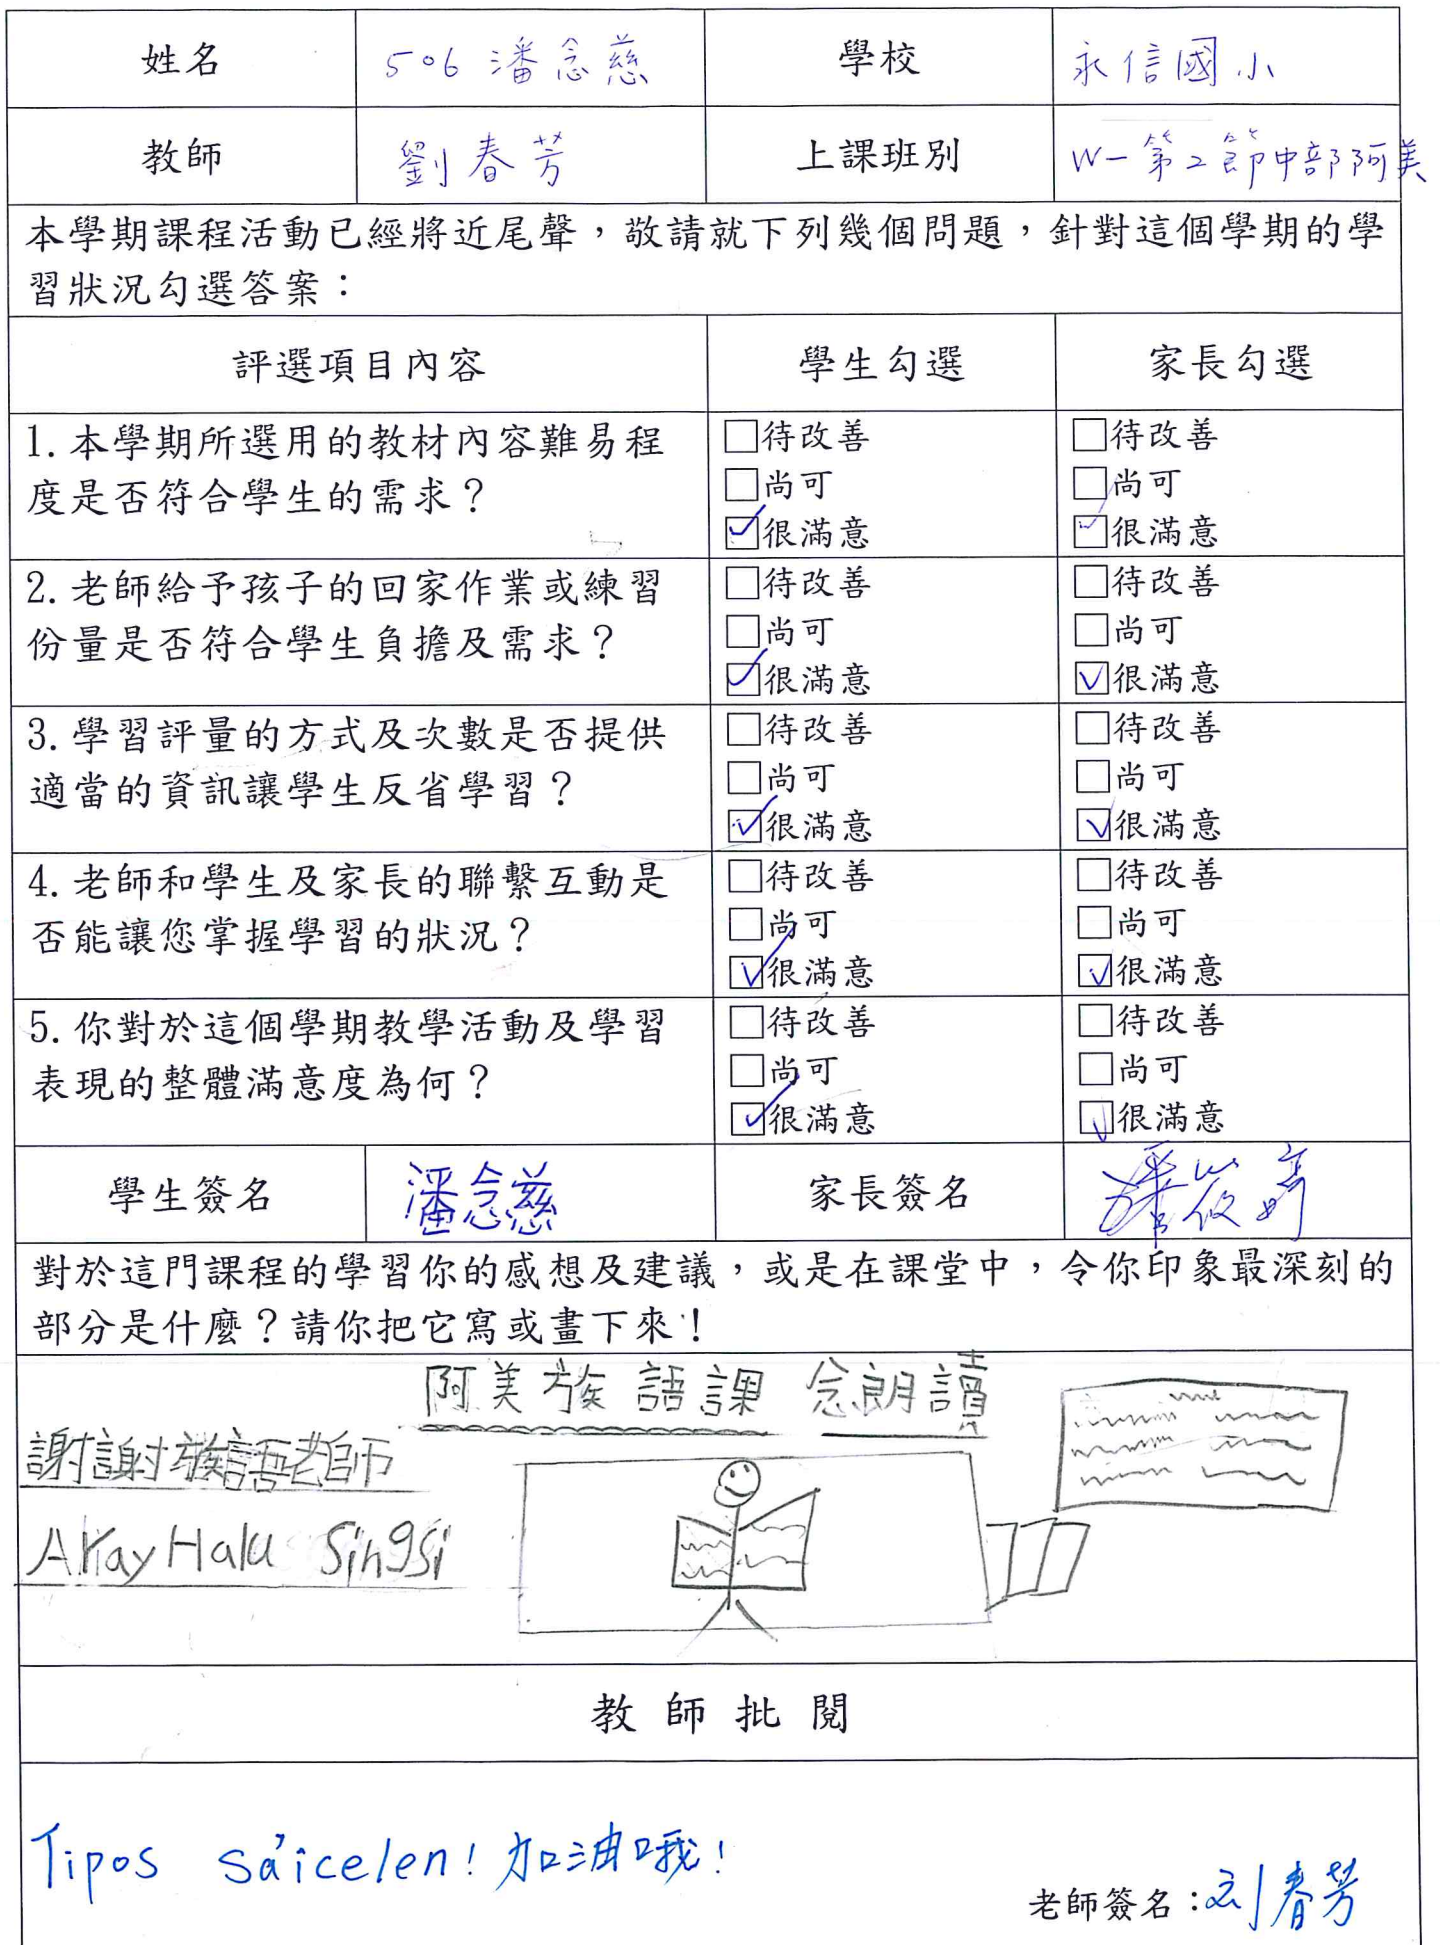 姓名 506 潘念慈 學校 永信國小
教師 劉春芳 上課班別 W一第2節中部阿美
本學期課程活動已經將近尾聲，敬請就下列幾個問題，針對這個學期的學
習狀況勾選答案：
評選項目內容 學生勾選 家長勾選
1.本學期所選用的教材內容難易程
度是否符合學生的需求？
□待改善
□尚可
☑很滿意
□待改善
□尚可
☑很滿意
2.老師給予孩子的回家作業或練習
份量是否符合學生負擔及需求？
□待改善
□尚可
☑很滿意
□待改善
□尚可
☑很滿意
3.學習評量的方式及次數是否提供
適當的資訊讓學生反省學習？
□待改善
□尚可
☑很滿意
□待改善
□尚可
☑很滿意
4.老師和學生及家長的聯繫互動是
否能讓您掌握學習的狀況？
□待改善
□尚可
☑很滿意
□待改善
□尚可
☑很滿意
5.你對於這個學期教學活動及學習
表現的整體滿意度為何？
□待改善
□尚可
☑很滿意
□待改善
□尚可
☑很滿意
學生簽名 潘念慈 家長簽名
對於這門課程的學習你的感想及建議，或是在課堂中，令你印象最深刻的
部分是什麼？請你把它寫或畫下來！
阿美族語課 念朗讀
謝謝族語老師
AKay Halu Singsi
教師批閱
Tipos sa'icelen! 加油哦!
老師簽名：刘春芳